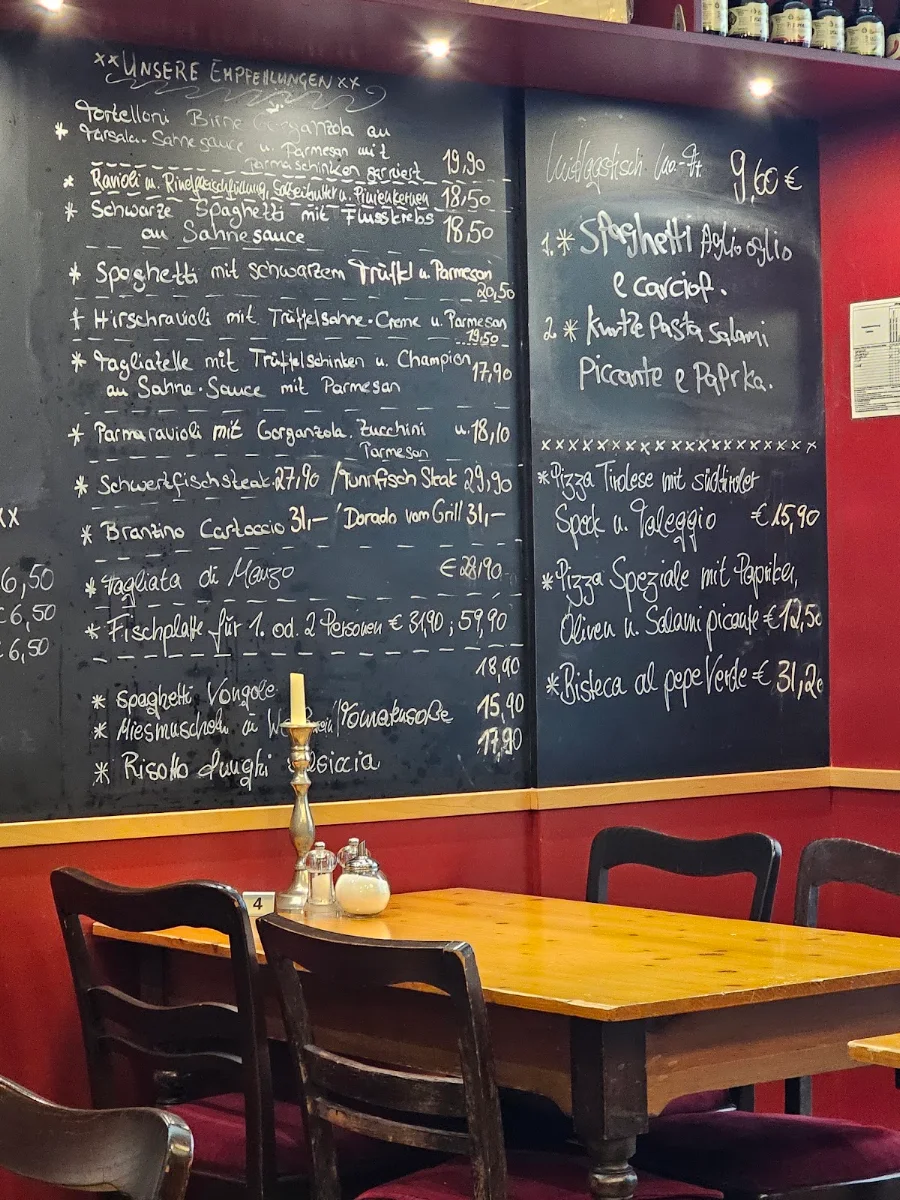 xx UNSERE EMPFEHLUNGEN xx
Tortelloni Birne Gorganzola au
* Marsala-Sahnesauce u. Parmesan mit
Parmaschinken garniert 19,90
* Ravioli m. Rindfleischfüllung, Salbeibutter u. Pinienkernen 18,50
* Schwarze Spaghetti mit Flusskrebs
au Sahnesauce 18,50
* Spaghetti mit schwarzem Trüffel u. Parmesan
20,50
* Hirschravioli mit Trüffelsahne-Creme u. Parmesan
19,50
* Tagliatelle mit Trüffelschinken u. Champion 17,90
au Sahne-Sauce mit Parmesan
* Parmaravioli mit Gorganzola. Zucchini u. 18,10
Parmesan
* Schwertfischsteak 27,90 / Tunnfisch Stak 29,90
* Branzino Cartoccio 31,– / Dorado vom Grill 31,–
* Tagliata di Manzo € 28,90
* Fischplatte für 1. od. 2 Personen € 31,90 ; 59,90
18,90
* Spaghetti Vongole
15,90
* Miesmuscheln in / Tomatensoße
17,90
* Risotto funghi
xx
6,50
€6,50
€6,50
Mittagstisch Mo-Fr 9,60 €
1. * Spaghetti Aglio oglio
e carciof.
2 * Kurtze Pasta Salami
Piccante e PaPrka.
xxxxxxxxxxxxxxxxxxxx
* Pizza Tirolese mit südtiroler
Speck u. Taleggio € 15,90
* Pizza Speziale mit Paprika,
Oliven u. Salami picante € 12,50
* Bisteca al pepe Verde € 31,20
4